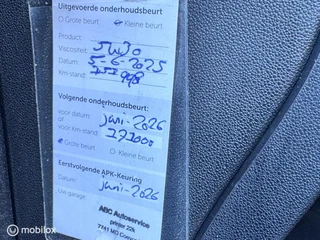 Uitgevoerde onderhoudsbeurt
Grote beurt Kleine beurt
Product:
Viscositeit: 5W30
Datum: 5-6-2025
Km-stand:
Volgende onderhoudsbeurt:
voor datum: juni-2026
of
voor km-stand:
Grote beurt Kleine beurt
Eerstvolgende APK-Keuring
Datum: juni-2026
Uw garage:
ABC Autoservice
7741 MD
Marktplaats